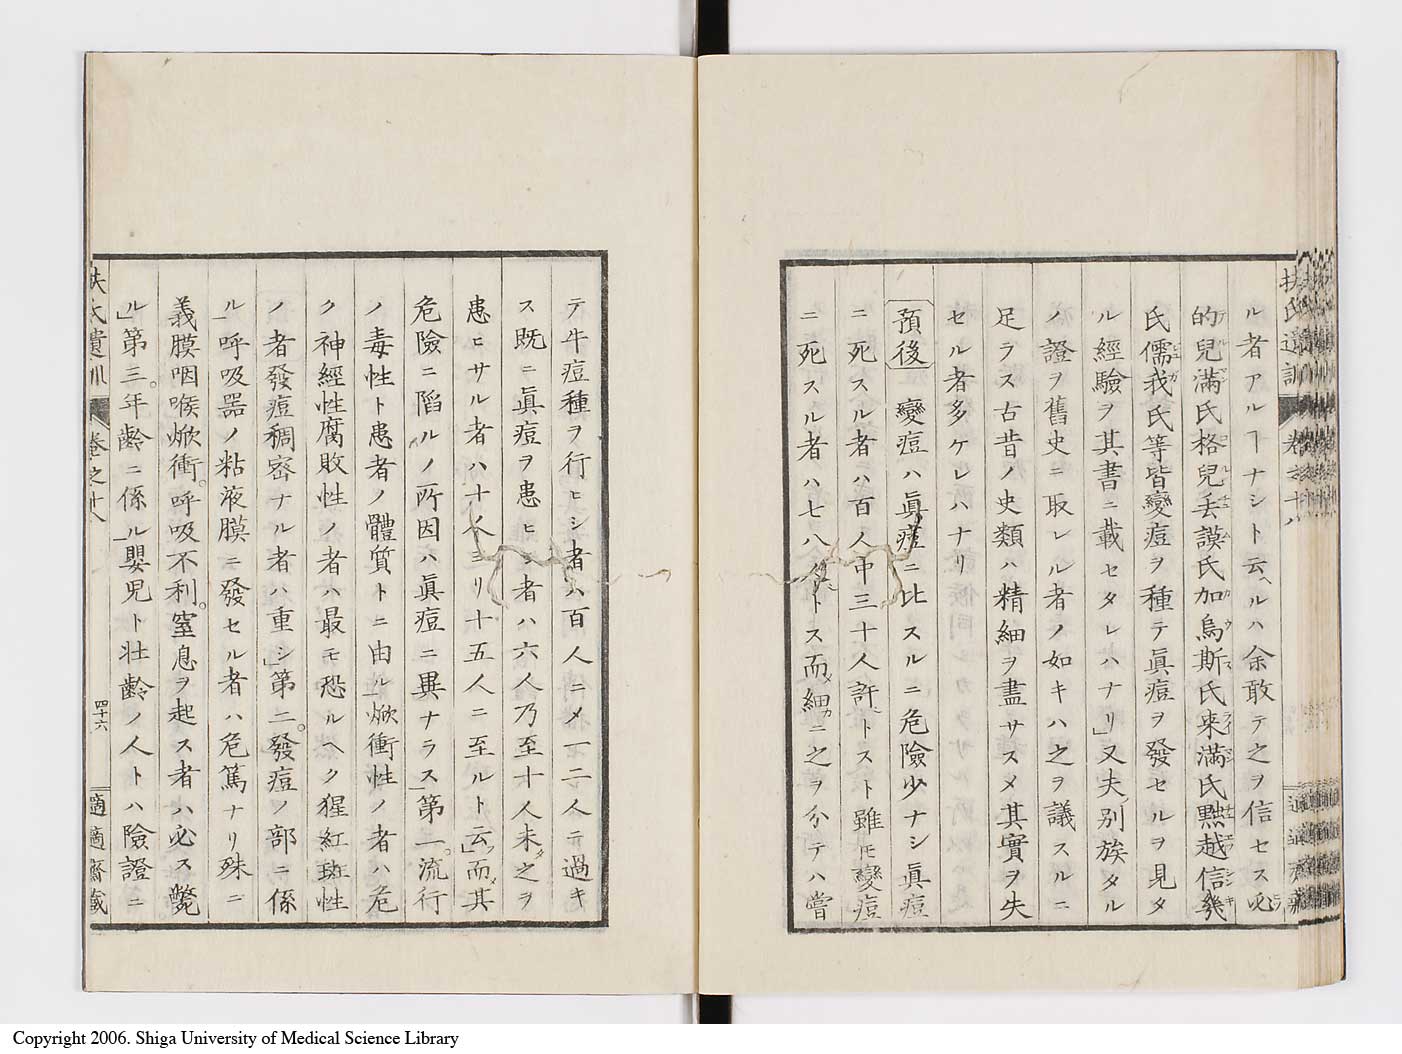 ル者アルヿナシト云ヘルハ余敢テ之ヲ信セス必
的兒滿氏格兒丢謨氏加烏斯氏来滿氏黙越信幾
氏儒我氏等皆變痘ヲ種テ眞痘ヲ發セルヲ見タ
ル經驗ヲ其書ニ載セタレハナリ」又夫ノ別族タル
ノ證ヲ舊史ニ取レル者ノ如キハ之ヲ議スルニ
足ラス古昔ノ史類ハ精細ヲ盡サスメ其實ヲ失
セル者多ケレハナリ
預後 變痘ハ眞痘ニ比スルニ危險少ナシ眞痘
ニ死スル者ハ百人中三十人許トスト雖モ變痘
ニ死スル者ハ七八人トス而メ細カニ之ヲ分テハ嘗
扶氏遺訓 卷之十八
テ牛痘種ヲ行ヒシ者ハ百人ニメ一二人ニ過キ
ス既ニ眞痘ヲ患ヒシ者ハ六人乃至十人未タ之ヲ
患ヒサル者ハ十人ヨリ十五人ニ至ルト云フ」而メ其
危險ニ陷ルノ所因ハ眞痘ニ異ナラス」第一。流行
ノ毒性ト患者ノ體質トニ由ル」焮衝性ノ者ハ危
ク神經性腐敗性ノ者ハ最モ恐ルヘク猩紅斑性
ノ者發痘稠密ナル者ハ重シ」第二。發痘ノ部ニ係
ル」呼吸器ノ粘液膜ニ發セル者ハ危篤ナリ殊ニ
義膜咽喉焮衝。呼吸不利。窒息ヲ起ス者ハ必ス斃
ル」第三。年齡ニ係ル」嬰兒ト壮齡ノ人トハ險證ニ
扶氏遺訓 卷之十八 四十六 適適齋藏
Copyright 2006. Shiga University of Medical Science Library